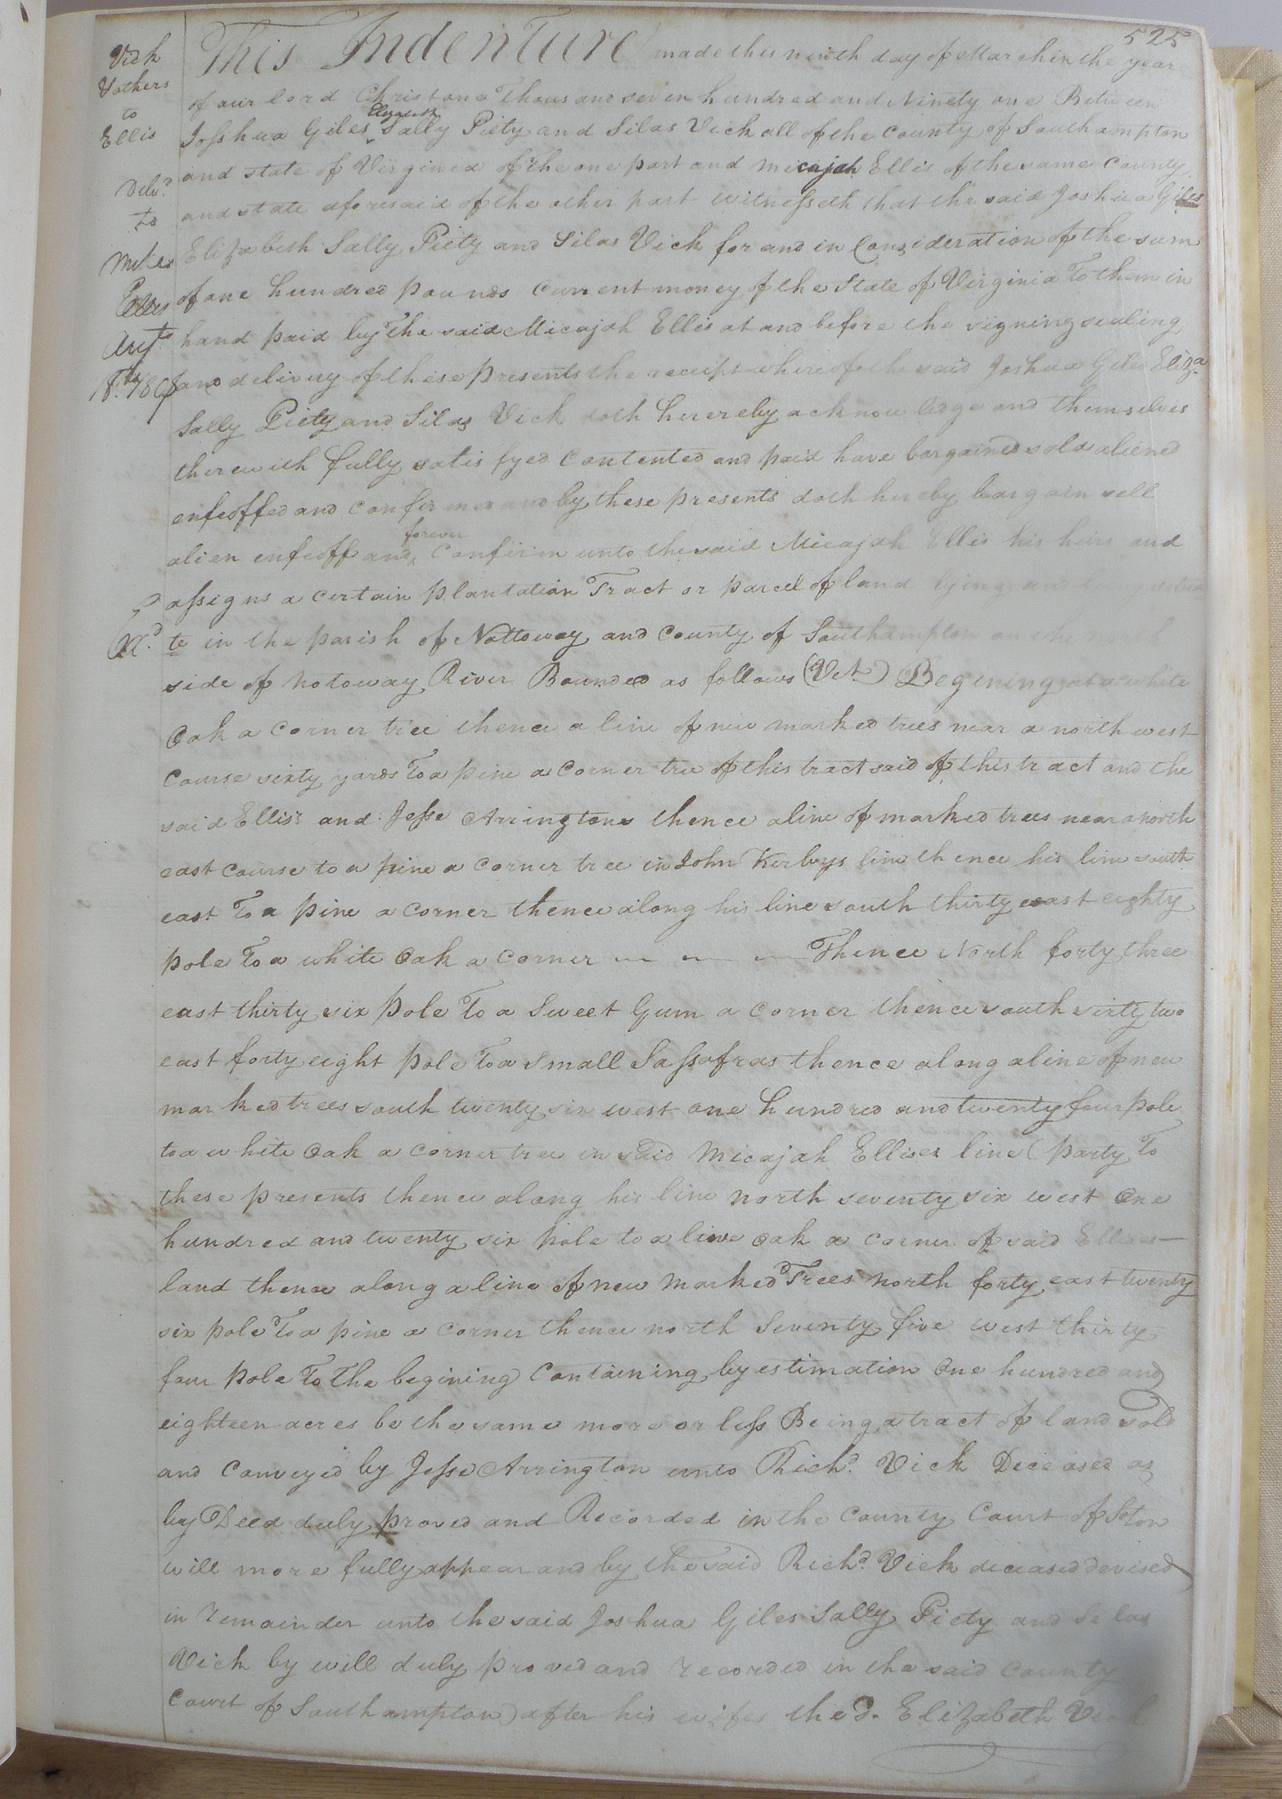 525
Vick
& others
to
Ellis
Delv.d
to
Miles
Ellis
Augt
1st 1801
Md.
This Indenture made this ninth day of March in the year
of our lord Christ one Thousand seven hundred and Ninety one Between
Elizabeth
Joshua Giles, Sally Piety and Silas Vick all of the County of Southampton
and state of Virginia of the one part and Micajah Ellis of the same County
and state aforesaid of the other part Witnesseth that the said Joshua Giles
Elizabeth Sally, Piety and Silas Vick for and in Consideration of the sum
of one hundred pounds current money of the State of Virginia To them in
hand paid by The said Micajah Ellis at and before the signing sealing
and delivery of these presents the receipt whereof the said Joshua Giles Eliza.
Sally Piety and Silas Vick doth herereby acknowledge and themselves
therewith fully satisfyed Contented and paid have bargained sold aliened
enfeoffed and confirmed and by these presents doth hereby bargain sell
forever
alien enfeoff and, Confirm unto the said Micajah Ellis his heirs and
assigns a certain plantation Tract or parcel of land lying and
te in the parish of Nottoway and County of Southampton on the
side of Notoway River Bounded as follows (Vct) Begining at a white
Oak a corner tree thence a line of new marked trees near a north west
Course sixty yards To a pine a Corner tree of this tract said of this tract and the
said Ellis's and Jesse Arringtons thence a line of marked trees near a north
east Course to a pine a corner tree in John Kerbys line thence his line south
east To a pine a corner thence along his line south thirty east eighty
pole To a white Oak a corner — — — Thence North forty three
east thirty six pole To a Sweet Gum a corner thence south sixty two
east forty eight pole To a small Sassafras thence along a line of new
marked trees south twenty six west one hundred and twenty four pole
to a white Oak a corner tree in said Micajah Ellises line (party To
these presents thence along his line north seventy six west One
hundred and twenty six pole to a live Oak a corner of said Ellises —
land thence along a line of new marked Trees north forty east twenty
six pole To a pine a corner thence north Seventy five west thirty
four pole To The begining Containing by estimation One hundred and
eighteen acres be the same more or less Being a tract of land sold
and Conveyed by Jesse Arrington unto Richd. Vick Deceased as
by Deed duly proved and Recorded in the County Court of Soton
will more fully appear and by the said Richd. Vick deceased devised
in remainder unto the said Joshua Giles Sally Piety and Silas
Vick by will duly proved and recorded in the said County
Court of Southampton) after his wifes the d. Elizabeth Vick